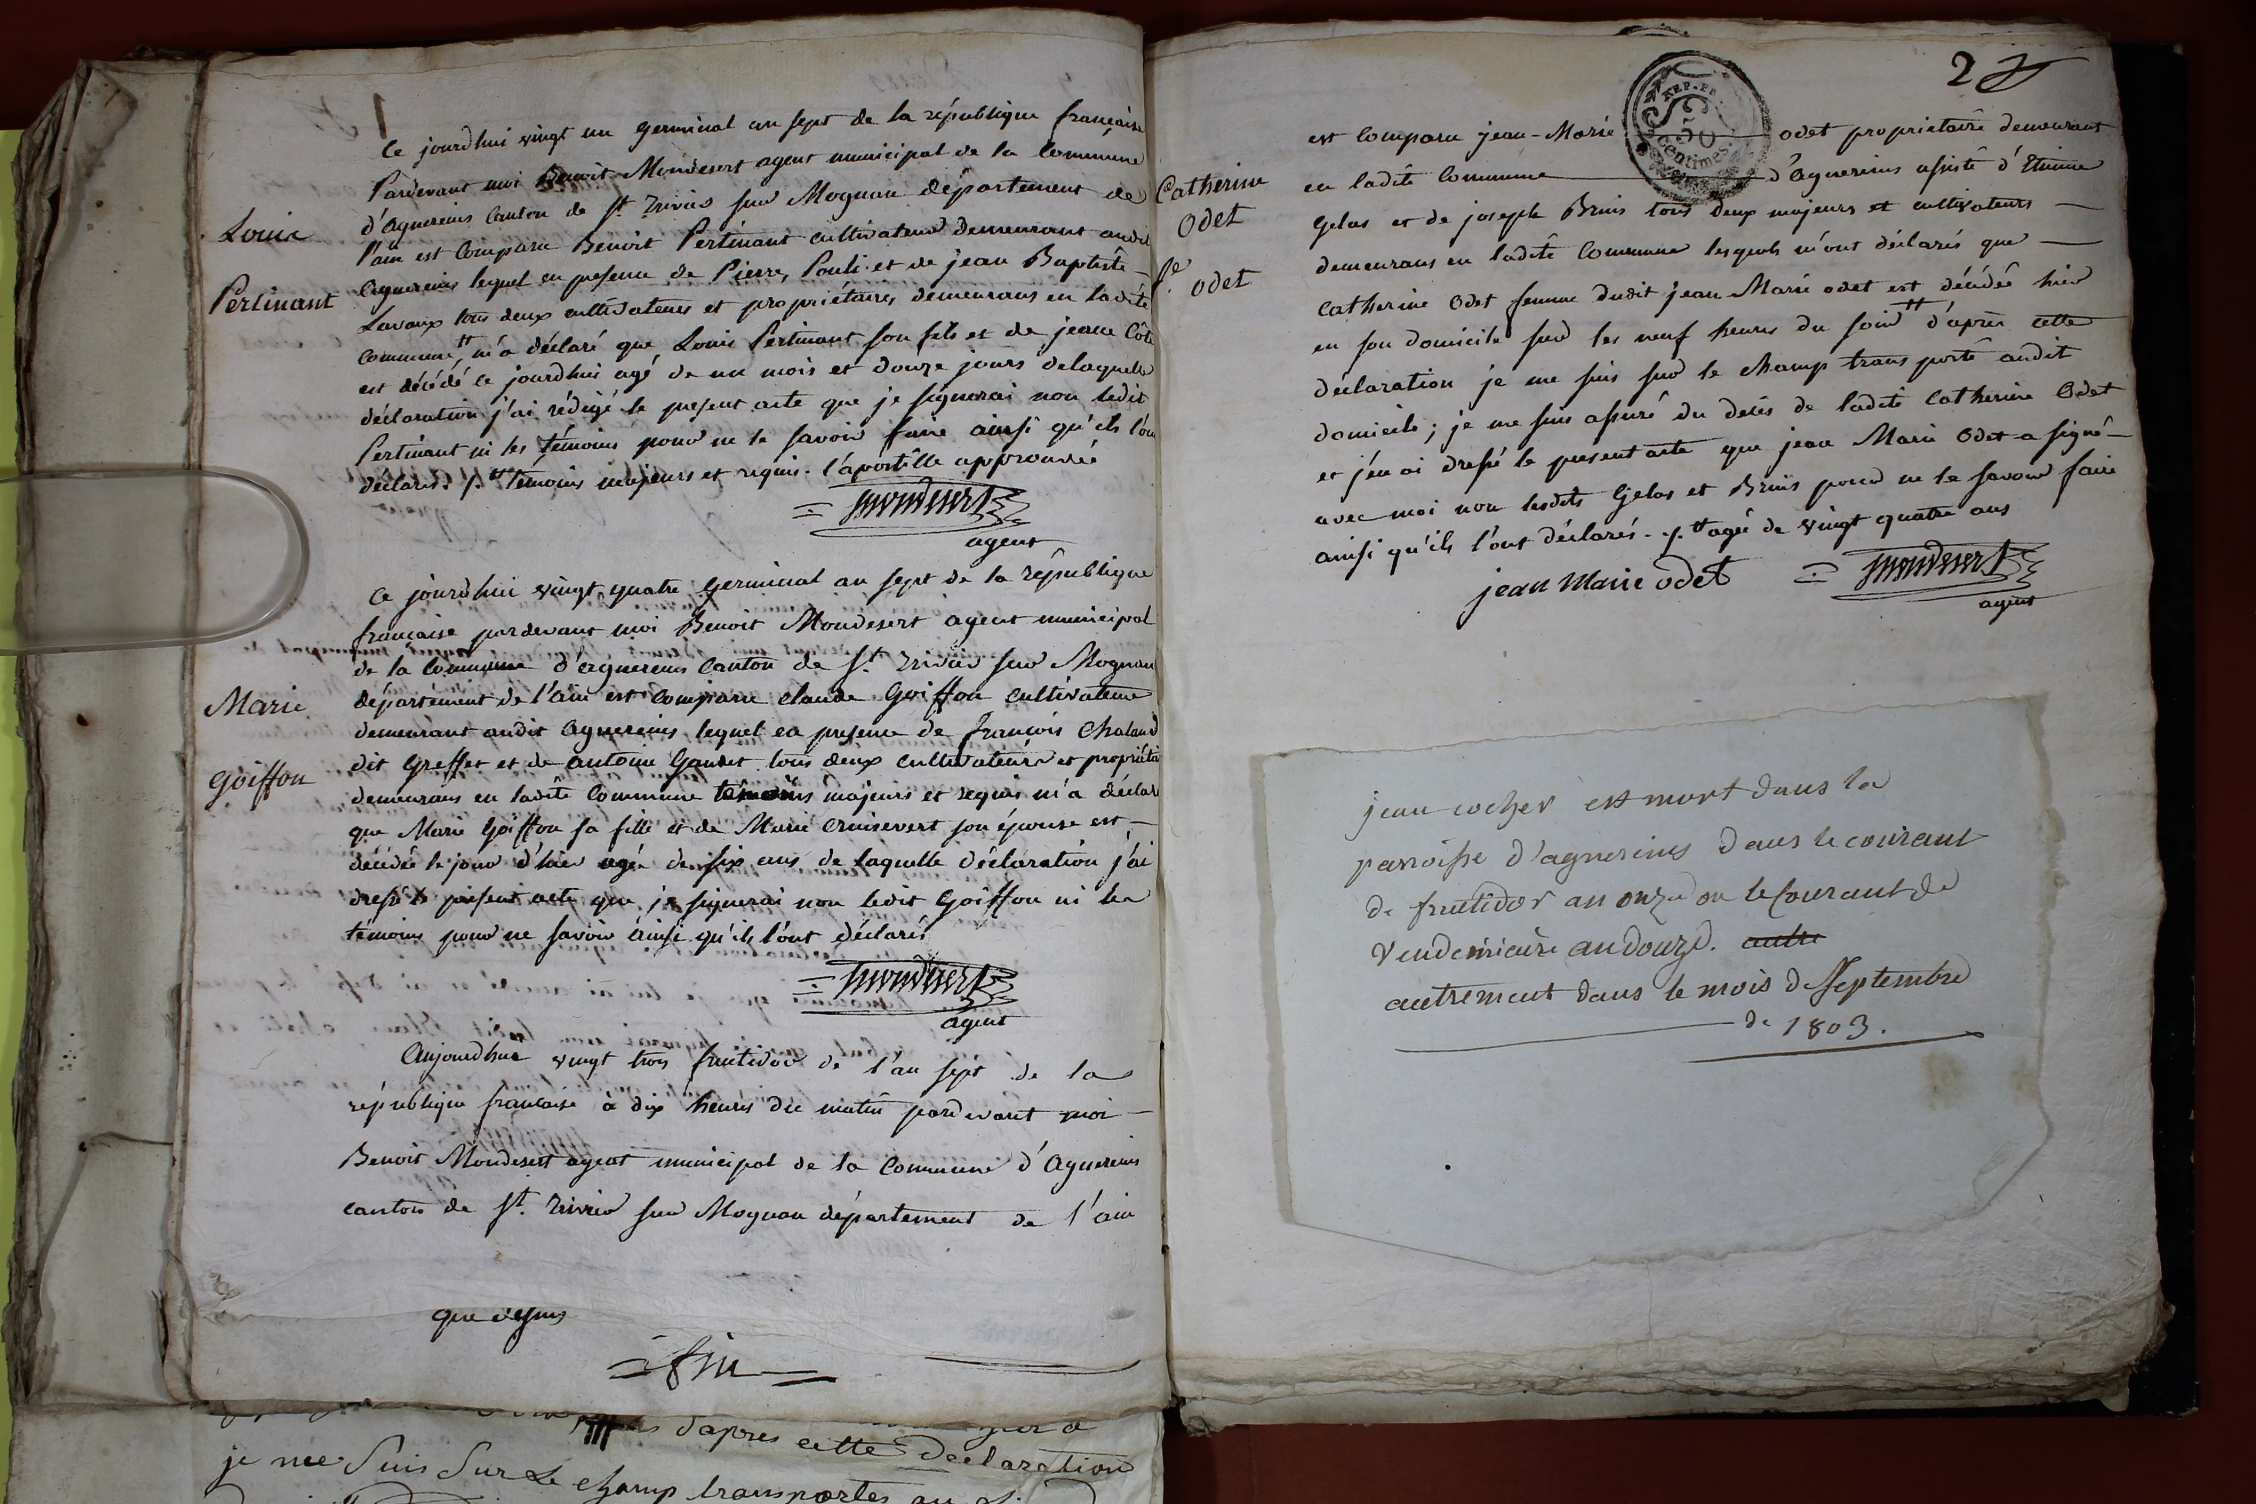 1
Ce jourdhui vingt un germinal an sept de la république française
Pardevant moi Benoit Mondesert agent municipal de la Commune
d'agnereins Canton de St. Trivier sur Mognan département de
l'ain est Comparu Benoit Pertinant cultivateur demeurant audit
Louis
agnereins lequel en presence de Pierre Pouli et de jean Baptiste
Pertinant
Lavaux tous deux cultivateurs et propriétaires demeurans en ladite
commune tt m'a déclaré que Louis Pertinant son fils et de jeane Côte
est décédé ce jourdhui agé de un mois et douze jours delaquelle
déclaration j'ai rédigé le present acte que je signerai non ledit
Pertinant ni les témoins pour ne le savoir faire ainsi qu'ils l'ont
déclarés. /. tt témoins majeurs et requis. l'apostille approuvée
mondesert
agent
Ce jourdhui vingt quatre germinal an sept de la république
française pardevant moi Benoit Mondesert agent municipal
de la Commune d'agnereins Canton de St. Trivier sur Mognan
Marie
département de l'ain est Comparu claude Goiffon cultivateur
demeurant audit agnereins lequel en presence de françois Chaland
dit Greffet et de antoine Gaudet tous deux cultivateurs et propriétai
goiffon
demeurans en ladite Commune témoins majeurs et requis m'a déclar
que Marie Goiffon sa fille et de Marie son épouse est
décédée le jour d'hier agée de six ans de laquelle déclaration j'ai
dressé le present acte que je signerai non ledit Goiffon ni les
témoins pour ne savoir ainsi qu'ils l'ont déclarés
mondesert
agent
Aujourdhui vingt trois fructidor de l'an sept de la
république française à dix heures du matin pardevant moi
Benoit Mondesert agent municipal de la Commune d'Agnereins
canton de St. Trivier sur Mognan département de l'ain
que dessus
fin
d'apres cette declaration
je me suis sur le champ transportés au
2
REP. FR.
50
Centimes
est Comparu jean-Marie odet propriétaire demeurant
en ladite Commune d'Agnereins assisté d'Etienne
Catherine
Odet
Gelas et de joseph Bruis tous deux majeurs et cultivateurs
demeurans en ladite Commune lesquels m'ont déclarés que
fe. odet
Catherine Odet femme dudit jean Marie odet est décédée hier
en son domicile sur les neuf heures du soir tt d'après cette
déclaration je me suis sur le champ transporté audit
domicile; je me suis assuré du decès de ladite Catherine Odet
et j'en ai dressé le present acte que jean Marie Odet a signé
avec moi non lesdits Gelas et Bruis pour ne le savoir faire
ainsi qu'ils l'ont déclarés. /. tt agée de vingt quatre ans
jean marie odet
mondesert
agent
jean cocher est mort dans la
parroisse d'agnereins dans le courant
de fructidor an onze ou le courant de
Vendemiaire an douze. autre
autrement dans le mois de septembre
de 1803.